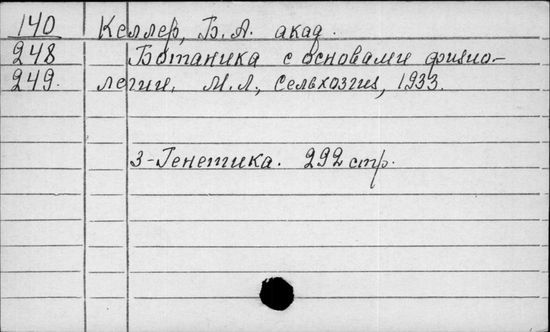 140 Келлер, Б. А. акад.
248 Ботаника с основами физио-
249. логии. М.Л., Сельхозгиз, 1933.
3-Генетика. 292 стр.